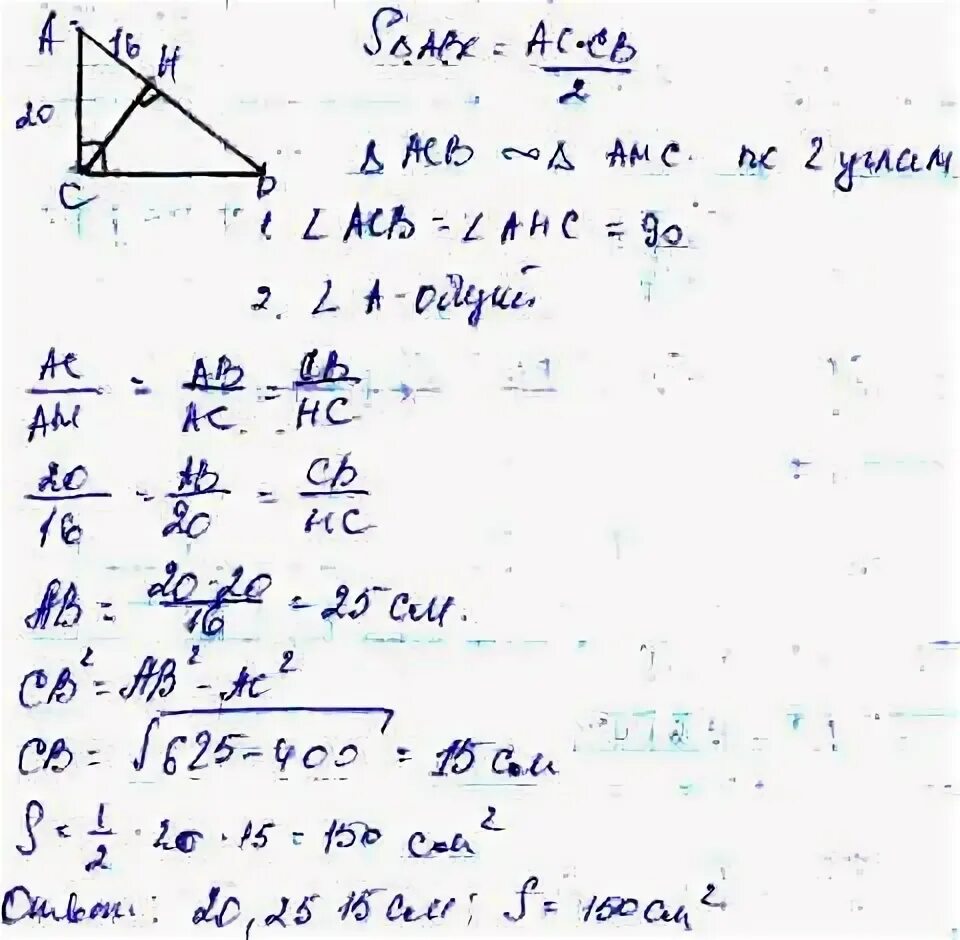 A 16 H
20
C B
S△ABC = AC·CB / 2
△ ACB ∞ △ AHC. по 2 углам
1 ∠ ACB = ∠ AHC = 90°
2. ∠ A - общий
AC / AH = AB / AC = CB / HC
20 / 16 = AB / 20 = CB / HC
AB = 20·20 / 16 = 25 см.
CB² = AB² - AC²
CB = √625-400 = 15 см
S = 1/2 · 20 · 15 = 150 см²
Ответ: 20, 25 15 см; S = 150 см²